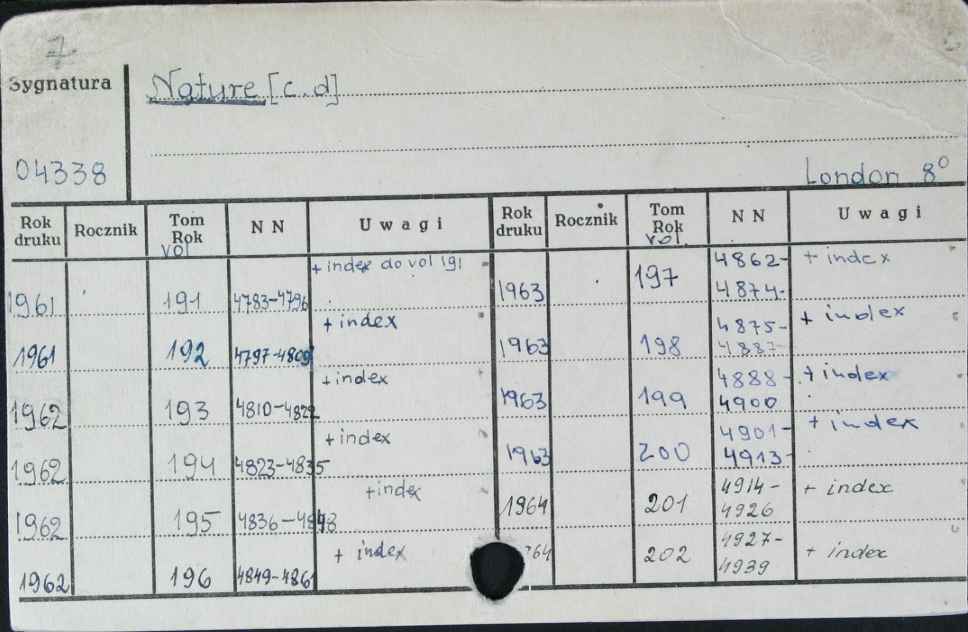 7
Sygnatura
Nature [c.d]
04338
London 8°
Rok druku Rocznik Tom Rok vol NN Uwagi Rok druku Rocznik Tom Rok vol. NN Uwagi
1961 191 4783-4796 + index do vol 191
1961 192 4797-4809 + index
1962 193 4810-4822 + index
1962 194 4823-4835 + index
1962 195 4836-4848 + index
1962 196 4849-4861 + index
1963 197 4862- + index
4874-
1963 198 4875- + index
4887-
1963 199 4888- + index
4900
1963 200 4901- + index
4913-
1964 201 4914- + index
4926
64 202 4927- + index
4939